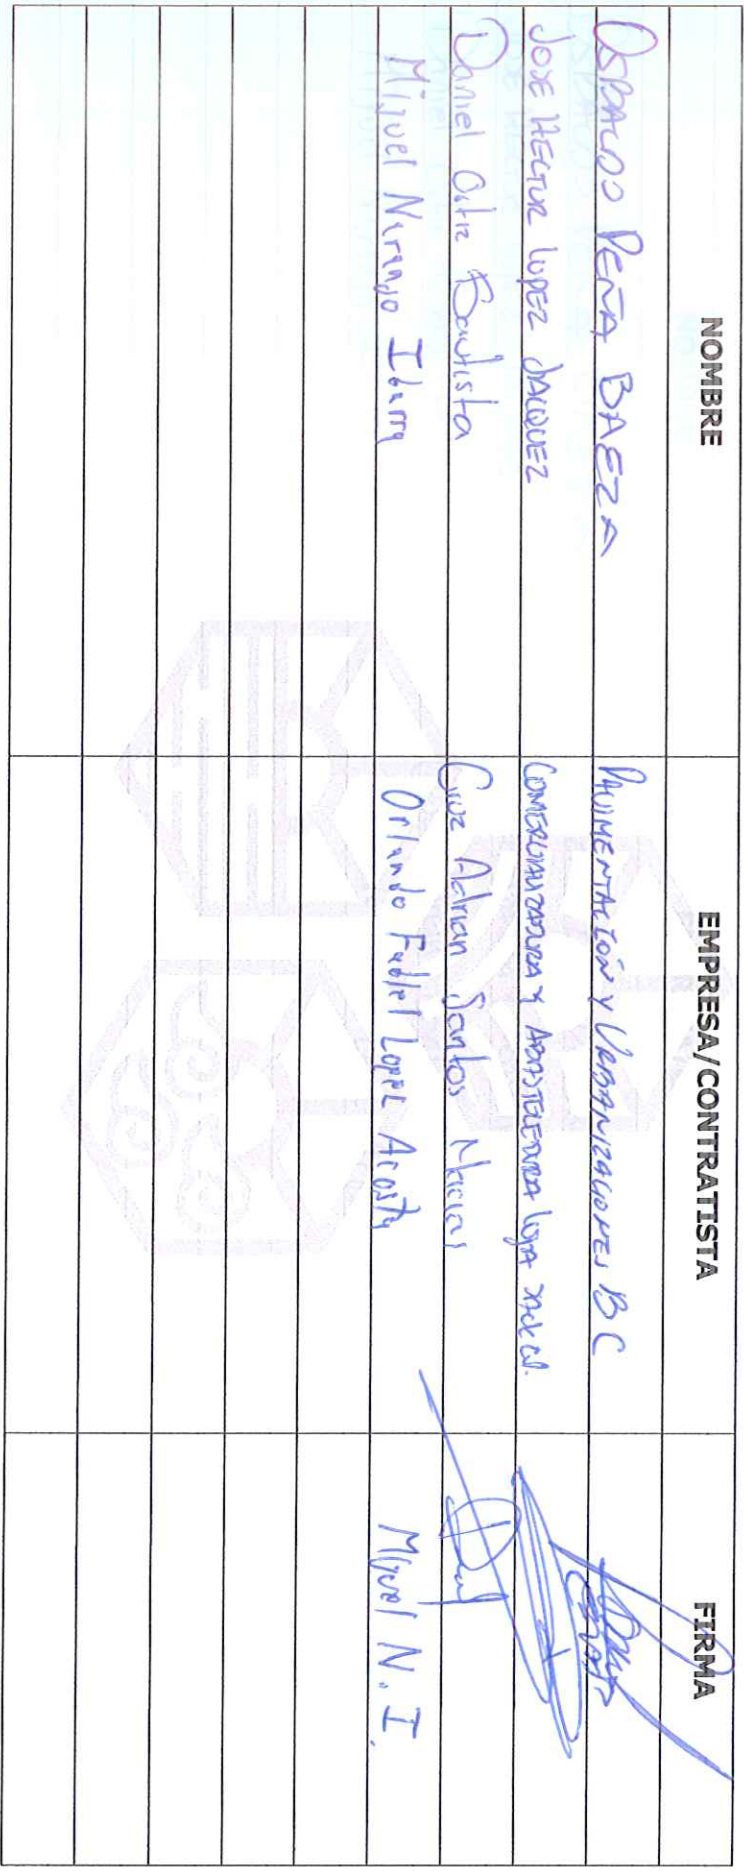 NOMBRE EMPRESA/CONTRATISTA FIRMA
OSBALDO PEÑA BAEZA PAVIMENTACIÓN Y URBANIZACIONES BC
JOSE HECTOR LOPEZ JACQUEZ COMERCIALIZADORA Y ABASTECEDORA
Daniel Ortiz Bautista Cruz Adrian Santos Macias
Miguel Naranjo Ibarra Orlando Fadiel Lopez Acosta Miguel N. I.